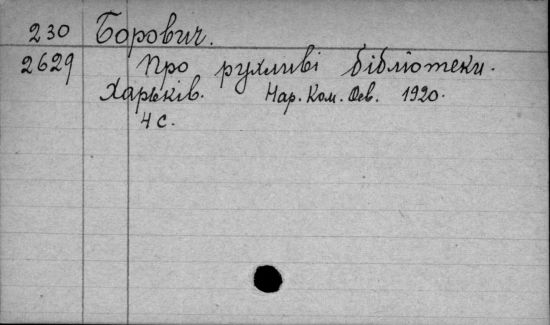 230 Борович.
2629 Про рухливі бібліотеки.
Харьків. Нар. Ком. Осв. 1920.
4 с.